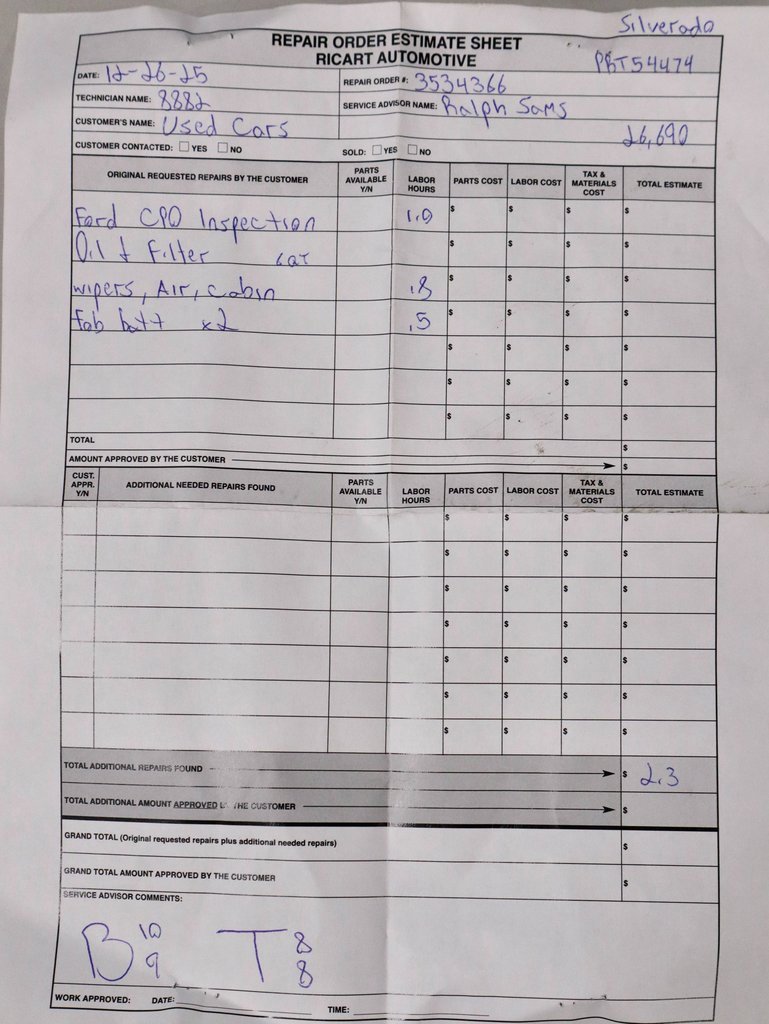 Silverado
REPAIR ORDER ESTIMATE SHEET
RICART AUTOMOTIVE
PBT54474
DATE: 12-26-25
REPAIR ORDER #: 3534366
TECHNICIAN NAME: 8882
SERVICE ADVISOR NAME: Ralph Sams
CUSTOMER'S NAME: Used Cars
26,690
CUSTOMER CONTACTED: YES NO
SOLD: YES NO
ORIGINAL REQUESTED REPAIRS BY THE CUSTOMER PARTS AVAILABLE Y/N LABOR HOURS PARTS COST LABOR COST TAX & MATERIALS COST TOTAL ESTIMATE
Ford CPO Inspection 1.0 $ $ $ $
Oil & Filter $ $ $ $
wipers, Air, cabin .8 $ $ $ $
fob batt x2 .5 $ $ $ $
$ $ $ $
$ $ $ $
$ $ $ $
TOTAL $
AMOUNT APPROVED BY THE CUSTOMER $
CUST. APPR. Y/N ADDITIONAL NEEDED REPAIRS FOUND PARTS AVAILABLE Y/N LABOR HOURS PARTS COST LABOR COST TAX & MATERIALS COST TOTAL ESTIMATE
$ $ $ $
$ $ $ $
$ $ $ $
$ $ $ $
$ $ $ $
$ $ $ $
$ $ $ $
TOTAL ADDITIONAL REPAIRS FOUND $ 2.3
TOTAL ADDITIONAL AMOUNT APPROVED BY THE CUSTOMER $
GRAND TOTAL (Original requested repairs plus additional needed repairs) $
GRAND TOTAL AMOUNT APPROVED BY THE CUSTOMER $
SERVICE ADVISOR COMMENTS:
B 10 T 8
9 8
WORK APPROVED: DATE: TIME: